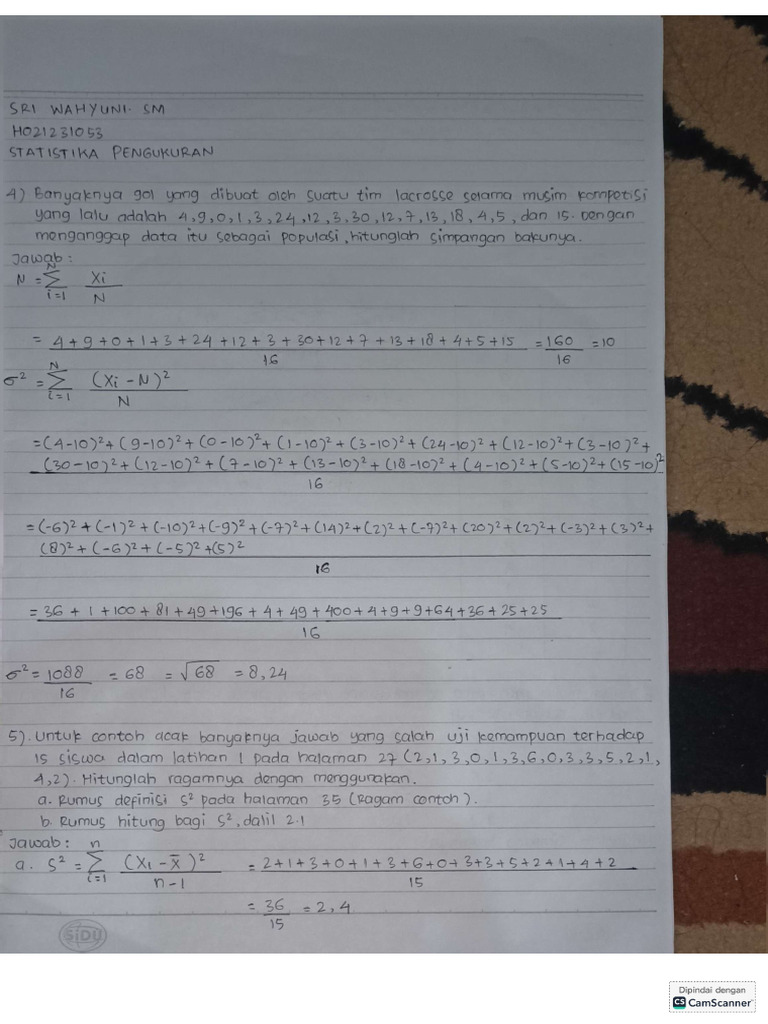 SRI WAHYUNI. SM
H021231053
STATISTIKA PENGUKURAN
4) Banyaknya gol yang dibuat oleh suatu tim lacrosse selama musim kompetisi
yang lalu adalah 4,9,0,1,3,24,12,3,30,12,7,13,18,4,5, dan 15. Dengan
menganggap data itu sebagai populasi, hitunglah simpangan bakunya.
Jawab:
N = N∑i=1 Xi/N
= 4+9+0+1+3+24+12+3+30+12+7+13+18+4+5+15/16 = 160/16 = 10
σ² = N∑i=1 (Xi-N)²/N
= (4-10)²+(9-10)²+(0-10)²+(1-10)²+(3-10)²+(24-10)²+(12-10)²+(3-10)²+
(30-10)²+(12-10)²+(7-10)²+(13-10)²+(18-10)²+(4-10)²+(5-10)²+(15-10)²
16
= (-6)²+(-1)²+(-10)²+(-9)²+(-7)²+(14)²+(2)²+(-7)²+(20)²+(2)²+(-3)²+(3)²+
(8)²+(-6)²+(-5)²+(5)²
16
= 36+1+100+81+49+196+4+49+400+4+9+9+64+36+25+25
16
σ² = 1088/16 = 68 = √68 = 8,24
5). Untuk contoh acak banyaknya jawab yang salah uji kemampuan terhadap
15 siswa dalam latihan 1 pada halaman 27 (2,1,3,0,1,3,6,0,3,3,5,2,1,
4,2). Hitunglah ragamnya dengan menggunakan.
a. Rumus definisi S² pada halaman 35 (Ragam contoh).
b. Rumus hitung bagi S², dalil 2.1
Jawab:
a. S² = n∑i=1 (Xi-X̄)²/n-1 = 2+1+3+0+1+3+6+0+3+3+5+2+1+4+2/15
= 36/15 = 2,4
SiDU
Dipindai dengan
CS CamScanner